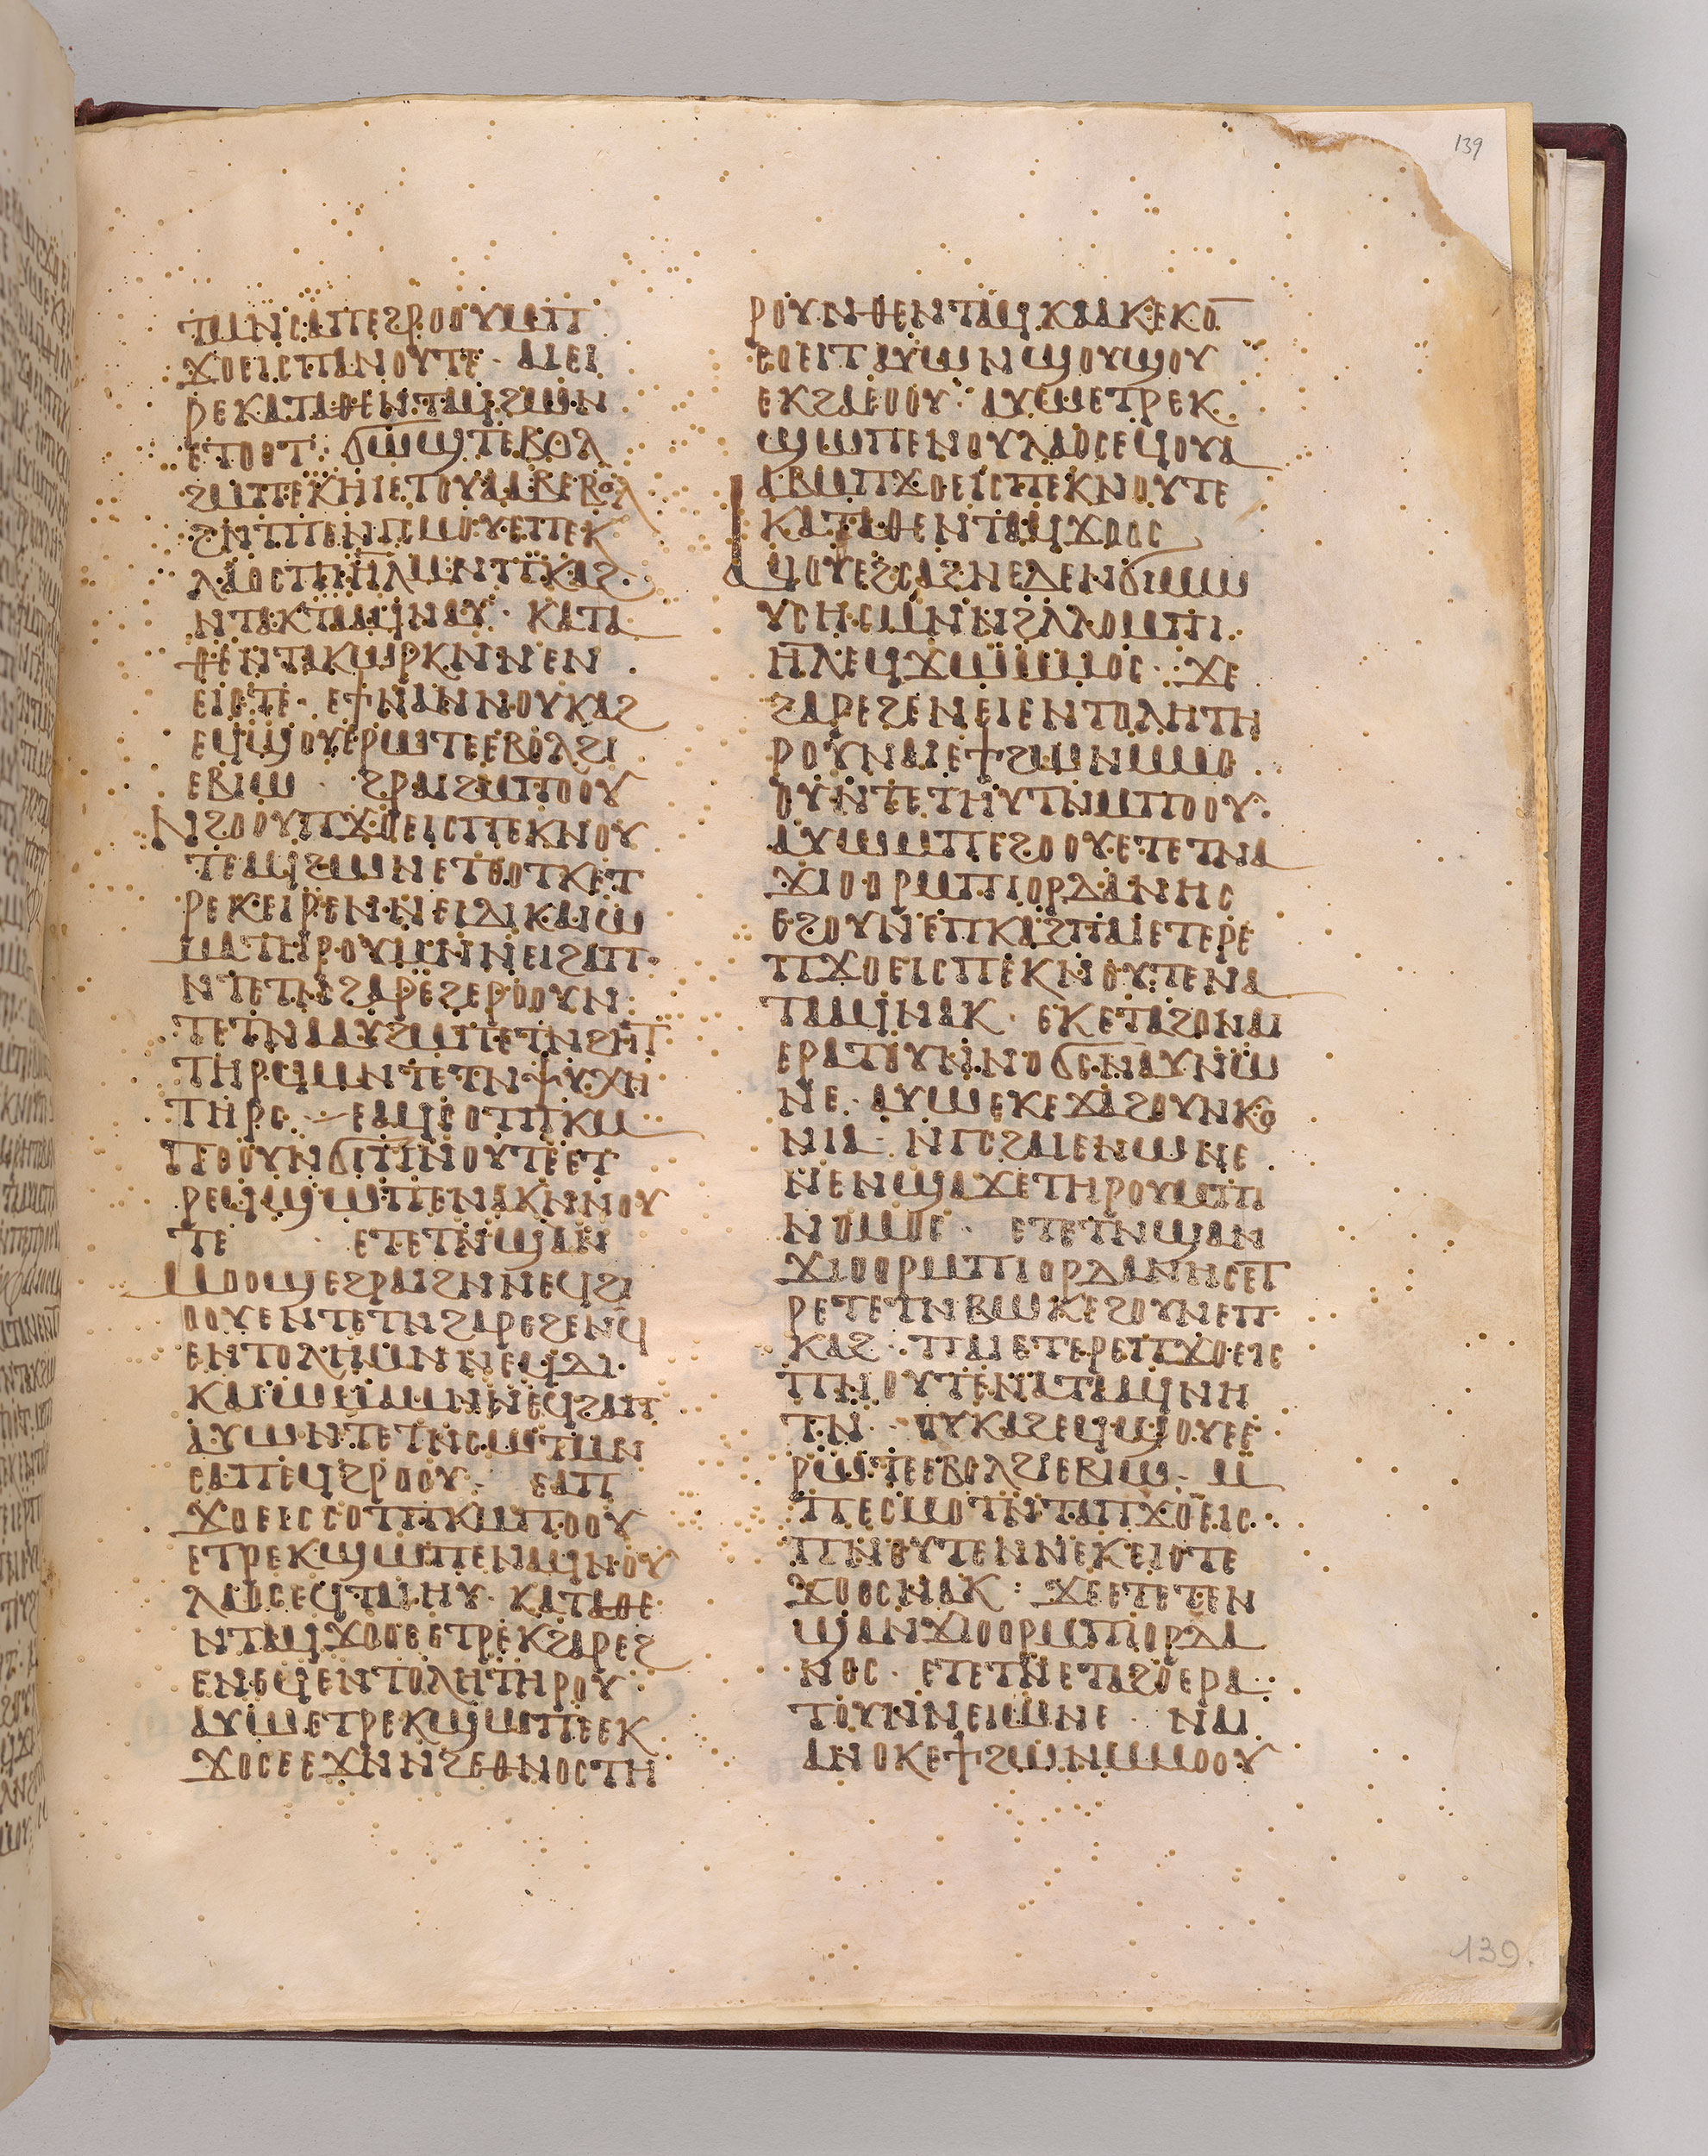 139
ⲧⲙⲛⲥⲁⲡⲉϩⲣⲟⲟⲩⲙⲡ
ϫⲟⲉⲓⲥⲡⲁⲛⲟⲩⲧⲉ· ⲁⲓⲉⲓ
ⲣⲉⲕⲁⲧⲁⲑⲉⲛⲧⲁϥϩⲱⲛ
ⲉⲧⲟⲟⲧ· ϭⲱϣⲧⲉⲃⲟⲗ
ϩⲙⲡⲉⲕⲏⲓⲉⲧⲟⲩⲁⲁⲃⲉⲃⲟⲗ
ϩⲛⲧⲡⲉⲛⲅⲥⲙⲟⲩⲉⲡⲉⲕ
ⲗⲁⲟⲥⲡⲓⲏⲗⲙⲛⲡⲕⲁϩ
ⲛⲧⲁⲕⲧⲁⲁϥⲛⲁⲩ· ⲕⲁⲧⲁ
ⲑⲉⲛⲧⲁⲕⲱⲣⲕⲛⲛⲉⲛ
ⲉⲓⲟⲧⲉ· ⲉϯⲛⲁⲛⲛⲟⲩⲕⲁϩ
ⲉϥϣⲟⲩⲉⲣⲱⲧⲉⲉⲃⲟⲗϩⲓ
ⲉⲃⲓⲱ· ϩⲣⲁⲓϩⲙⲡⲟⲟⲩ
ⲛϩⲟⲟⲩⲡϫⲟⲉⲓⲥⲡⲉⲕⲛⲟⲩ
ⲧⲉⲁϥϩⲱⲛⲉⲧⲟⲟⲧⲕⲉⲧ
ⲣⲉⲕⲉⲓⲣⲉⲛⲛⲉⲓⲇⲓⲕⲁⲓⲱ
ⲙⲁⲧⲏⲣⲟⲩⲙⲛⲛⲉⲓϩⲁⲡ·
ⲛⲧⲉⲧⲛϩⲁⲣⲉϩⲉⲣⲟⲟⲩⲛ
ⲧⲉⲧⲛⲁⲁⲩϩⲙⲡⲉⲧⲛϩⲏⲧ
ⲧⲏⲣϥⲙⲛⲧⲉⲧⲛⲯⲩⲭⲏ
ⲧⲏⲣⲥ· ⲉⲁϥⲥⲟⲧⲡⲕⲙ
ⲡⲟⲟⲩⲛϭⲓⲡⲛⲟⲩⲧⲉⲉⲧ
ⲣⲉϥϣⲱⲡⲉⲛⲁⲕⲛⲛⲟⲩ
ⲧⲉ · ⲉⲧⲉⲧⲛϣⲁⲛ
ⲙⲟⲟϣⲉϩⲣⲁⲓϩⲛⲛⲉϥϩⲓ
ⲟⲟⲩⲉⲛⲧⲉⲧⲛϩⲁⲣⲉϩⲉⲛⲉϥ
ⲉⲛⲧⲟⲗⲏⲙⲛⲛⲉϥⲇⲓ
ⲕⲁⲓⲱⲙⲁⲙⲛⲛⲉϥϩⲁⲡ
ⲁⲩⲱⲛⲧⲉⲧⲛⲥⲱⲧⲙⲛ
ⲥⲁⲡⲉϥϩⲣⲟⲟⲩ· ⲉⲁⲡ
ϫⲟⲉⲓⲥⲥⲟⲧⲡⲕⲙⲡⲟⲟⲩ
ⲉⲧⲣⲉⲕϣⲱⲡⲉⲛⲁϥⲛⲟⲩ
ⲗⲁⲟⲥⲉϥⲧⲁⲓⲏⲩ· ⲕⲁⲧⲁⲑⲉ
ⲛⲧⲁϥϫⲟⲟⲥⲉⲧⲣⲉⲕϩⲁⲣⲉϩ
ⲉⲛⲉϥⲉⲛⲧⲟⲗⲏⲧⲏⲣⲟⲩ
ⲁⲩⲱⲉⲧⲣⲉⲕϣⲱⲡⲉⲉⲕ
ϫⲟⲥⲉⲉϫⲛⲛϩⲉⲑⲛⲟⲥⲧⲏ
ⲣⲟⲩⲛⲑⲉⲛⲧⲁϥⲕⲁⲁⲕⲉⲕⲟ
ⲥⲟⲉⲓⲧⲁⲩⲱⲛϣⲟⲩϣⲟⲩ
ⲉⲕϩⲁⲉⲟⲟⲩ· ⲁⲩⲱⲉⲧⲣⲉⲕ
ϣⲱⲡⲉⲛⲟⲩⲗⲁⲟⲥⲉϥⲟⲩⲁ
ⲁⲃⲙⲡϫⲟⲉⲓⲥⲡⲉⲕⲛⲟⲩⲧⲉ
ⲕⲁⲧⲁⲑⲉⲛⲧⲁϥϫⲟⲟⲥ
ⲁϥⲟⲩⲉϩⲥⲁϩⲛⲉⲇⲉⲛϭⲓⲙⲱ
ⲩⲥⲏⲥⲙⲛⲛϩⲗⲗⲟⲙⲡⲓ
ⲏⲗⲉϥϫⲱⲙⲙⲟⲥ· ϫⲉ
ϩⲁⲣⲉϩⲉⲛⲉⲓⲉⲛⲧⲟⲗⲏⲧⲏ
ⲣⲟⲩⲛⲁⲓⲉϯϩⲱⲛⲙⲙⲟ
ⲟⲩⲛⲧⲉⲧⲏⲩⲧⲛⲙⲡⲟⲟⲩ·
ⲁⲩⲱⲙⲡⲉϩⲟⲟⲩⲉⲧⲉⲧⲛⲁ
ϫⲓⲟⲟⲣⲙⲡⲓⲟⲣⲇⲁⲛⲏⲥ
ⲉϩⲟⲩⲛⲉⲡⲕⲁϩⲡⲁⲓⲉⲧⲉⲣⲉ
ⲡϫⲟⲉⲓⲥⲡⲉⲕⲛⲟⲩⲧⲉⲛⲁ
ⲧⲁⲁϥⲛⲁⲕ· ⲉⲕⲉⲧⲁϩⲟⲛⲁⲕ
ⲉⲣⲁⲧⲟⲩⲛⲛⲟϭⲥⲛⲁⲩⲛⲱ
ⲛⲉ· ⲁⲩⲱⲉⲕⲉϫⲁϩⲟⲩⲛⲕⲟ
ⲛⲓⲁ· ⲛⲅⲥϩⲁⲓⲉⲛⲱⲛⲉ
ⲛⲉⲛϣⲁϫⲉⲧⲏⲣⲟⲩⲙⲡⲓ
ⲛⲟⲙⲟⲥ· ⲉⲧⲉⲧⲛϣⲁⲛ
ϫⲓⲟⲟⲣⲙⲡⲓⲟⲣⲇⲁⲛⲏⲥⲉⲧ
ⲣⲉⲧⲉⲧⲛⲃⲱⲕⲉϩⲟⲩⲛⲉⲡ
ⲕⲁϩ· ⲡⲁⲓⲉⲧⲉⲣⲉⲡϫⲟⲉⲓⲥ
ⲡⲛⲟⲩⲧⲉⲛⲁⲧⲁⲁϥⲛⲏ
ⲧⲛ· ⲟⲩⲕⲁϩⲉϥϣⲟⲩⲉⲉ
ⲣⲱⲧⲉⲉⲃⲟⲗϩⲓⲉⲃⲓⲱ· ⲙ
ⲡⲉⲥⲙⲟⲧⲛⲧⲁⲡϫⲟⲉⲓⲥ
ⲡⲛⲟⲩⲧⲉⲛⲛⲉⲕⲉⲓⲟⲧⲉ
ϫⲟⲟⲥⲛⲁⲕ: ϫⲉⲉⲧⲉⲧⲉⲛ
ϣⲁⲛϫⲓⲟⲟⲣⲙⲡⲓⲟⲣⲇⲁ
ⲛⲟⲥ· ⲉⲧⲉⲧⲛⲉⲧⲁϩⲟⲉⲣⲁ
ⲧⲟⲩⲛⲛⲉⲓⲱⲛⲉ· ⲛⲁⲓ
ⲁⲛⲟⲕⲉϯϩⲱⲛⲙⲙⲟⲟⲩ
139.